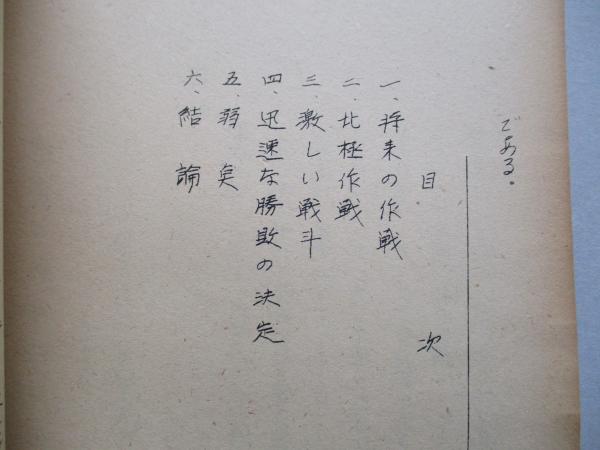 である。
目次
一、将来の作戦
二、北極作戦
三、激しい戦斗
四、迅速な勝敗の決定
五、弱点
六、結論